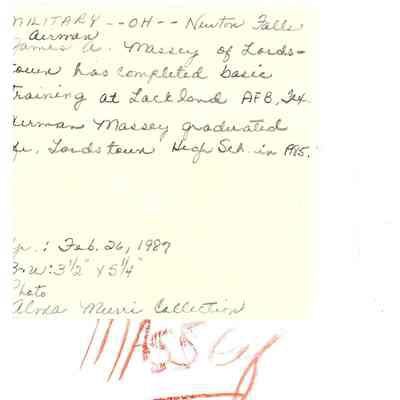 MILITARY--OH-- Newton Falls
Airman
James A. Massey of Lords-
town has completed basic
training at Lackland AFB, Tex.
Airman Massey graduated
fr. Lordstown High Sch. in 1985.
: Feb. 26, 1987
B-W: 3 1/2" x 5 1/4"
Photo
Collection
MASSEY